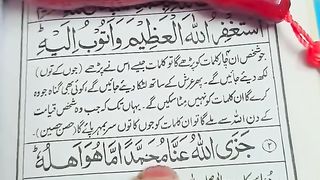 اَسْتَغْفِرُ اللهَ الْعَظِيْمَ وَاَتُوْبُ اِلَيْهِ
جو شخص ان کلمات کو پڑھے گا تو کلمات جیسے اس نے پڑھے (جوں کے توں)
لکھ دیئے جائیں گے۔ پھر عرش کے ساتھ لٹکا دیئے جائیں گے، کوئی بھی گناہ جو وہ
کرے گا ان کلمات کو نہیں مٹا سکیں گے۔ یہاں تک کہ جب وہ شخص قیامت
کے دن اللہ سے ملے گا تو ان کلمات کو جوں کا توں سر بمہر پائے گا (حصن حصین)
۳ جَزَى اللهُ عَنَّا مُحَمَّدًا مَّا هُوَ اَهْلُهٗ